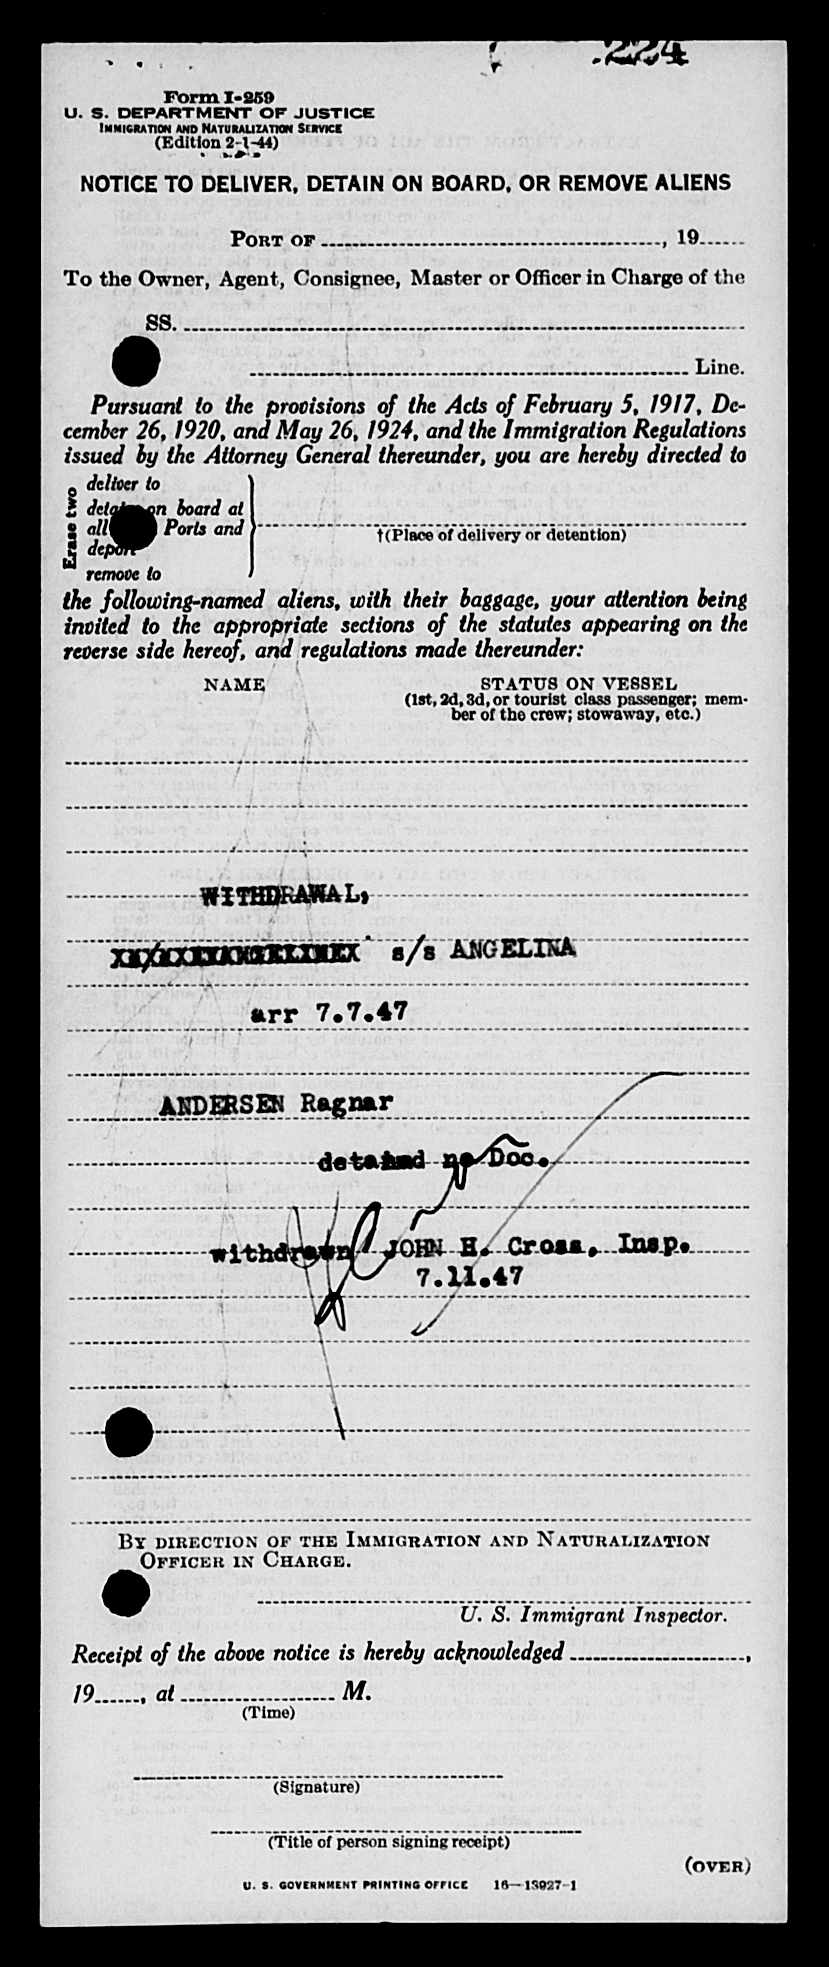 224
Form I-259
U. S. DEPARTMENT OF JUSTICE
IMMIGRATION AND NATURALIZATION SERVICE
(Edition 2-1-44)
NOTICE TO DELIVER, DETAIN ON BOARD, OR REMOVE ALIENS
PORT OF , 19
To the Owner, Agent, Consignee, Master or Officer in Charge of the
SS.
Line.
Pursuant to the provisions of the Acts of February 5, 1917, De-
cember 26, 1920, and May 26, 1924, and the Immigration Regulations
issued by the Attorney General thereunder, you are hereby directed to
Erase two
deliver to
detain on board at
all Ports and
deport
remove to
†(Place of delivery or detention)
the following-named aliens, with their baggage, your attention being
invited to the appropriate sections of the statutes appearing on the
reverse side hereof, and regulations made thereunder:
NAME STATUS ON VESSEL
(1st, 2d, 3d, or tourist class passenger; mem-
ber of the crew; stowaway, etc.)
WITHDRAWAL,
s/s ANGELINA
arr 7.7.47
ANDERSEN Ragnar
detained no Doc.
withdrawn JOHN H. Cross, Insp.
7.11.47
BY DIRECTION OF THE IMMIGRATION AND NATURALIZATION
OFFICER IN CHARGE.
U. S. Immigrant Inspector.
Receipt of the above notice is hereby acknowledged ,
19 , at M.
(Time)
(Signature)
(Title of person signing receipt)
(OVER)
U. S. GOVERNMENT PRINTING OFFICE 16—13927-1